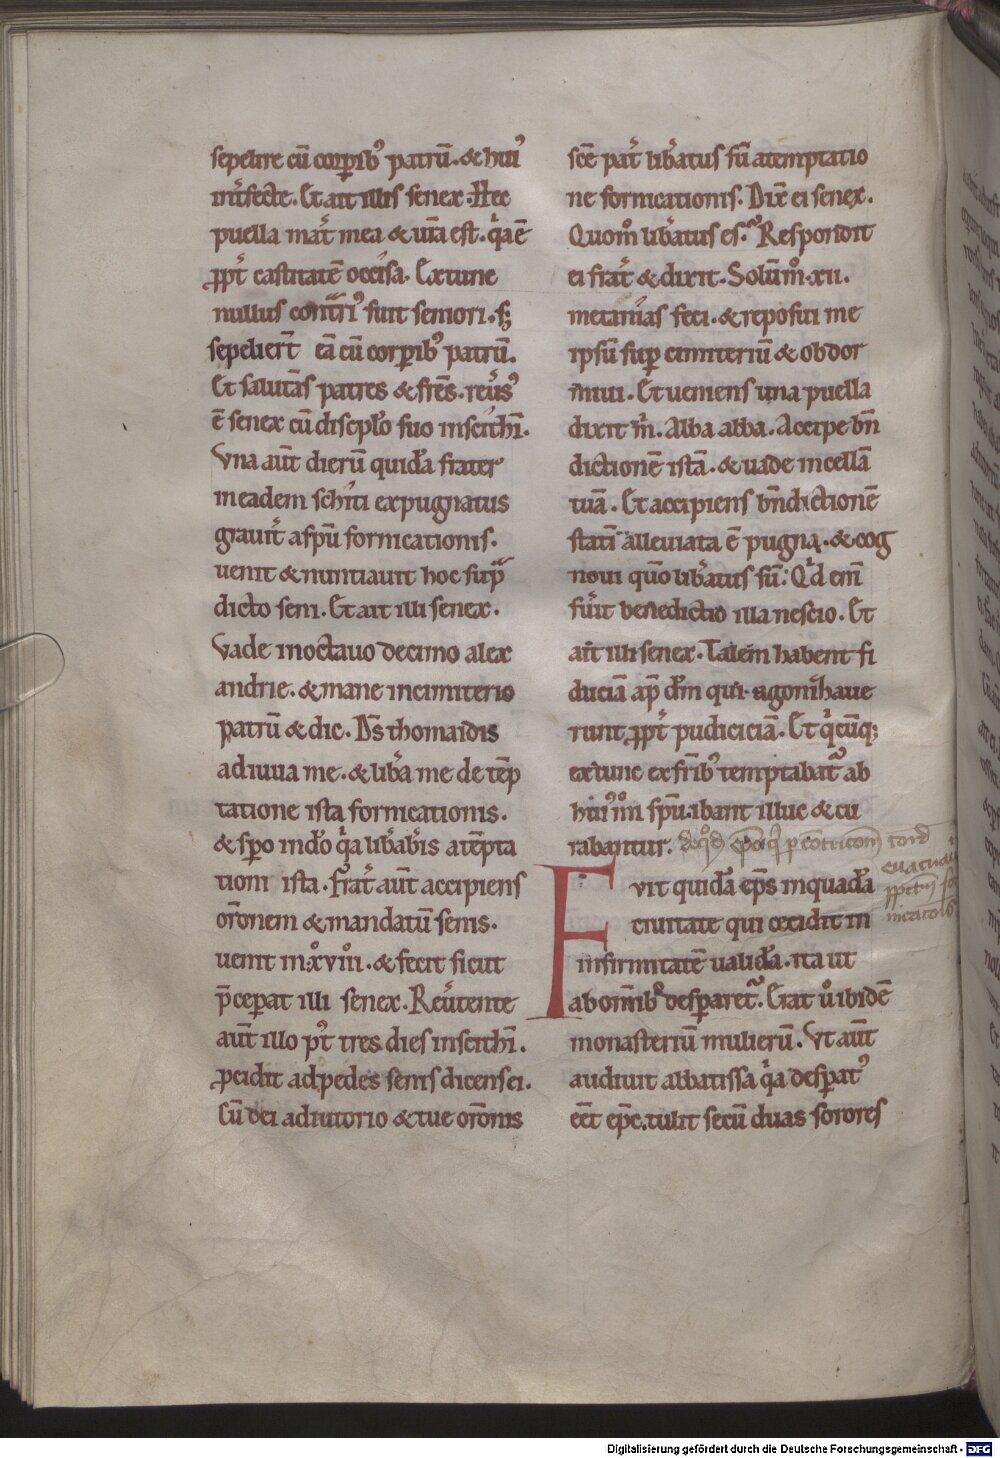 sepelire cū corꝑib᷒ patrū. & hui᷒
int̾fecte. Et ait illis senex. Hec
puella mat̾ mea & ur̄a est. q̓a ē
ꝓpt̾ castitatē occisa. Extunc
nullus contͣri᷒ fuit seniori. s;
sepelier̄t eā cū corꝑib᷒ patrū.
Et salutās patres & frēs. reu̾s᷒
ē senex cū discipl̾o suo inscithī.
Vna aūt dierū quidā frater
ineadem schiti expugnatus
grauit̾ aspū fornicationis.
uenit & nuntiauit hoc supͣ
dicto seni. Et ait illi senex.
Vade inoctauo decimo alex
andrie. & mane incimiterio
patrū & dic. Ds̄ thomaidis
adiuua me. & lib̾a me de tēp
tatione ista fornicationis.
& spo indō q̓a lib̾ab̾is atēpta
tioni ista. Frat̾ aūt accipiens
or̄onem & mandatū senis.
uenit in .xͦviiiͦ. & fecit sicut
p̄cepat illi senex. Reu̾tente
aūt illo pꝰt tres dies inscithī.
ꝓcidit adpedes senis dicens ei.
Cū dei adiutorio & tue or̄onis
sc̄e pat̾ lib̾atus sū atemptatio
ne fornicationis. Dix̄ ei senex.
Quomͦ lib̾atus es? Respondit
ei frat̾ & dixit. Solūmͦ .xii.
metanias feci. & reposui me
ipsū suꝑ cimiteriū & obdor
miui. Et ueniens una puella
dixit m̓. Abba abba. Accipe bn̄
dictionē istā. & uade incellā
tuā. Et accipiens bn̄dictionē
statī alleuiata ē pugna. & cog
noui quo lib̾atus sū. Qd̾ em̄
fu̾it benedictio illa nescio. Et
ait illi senex. Talem habent fi
duciā ap̄ dm̄ qui agoniҙaue
runt ꝓpt̾ pudiciciā. Et q̓cūq;
extunc exfrīb᷒ temptabat᷒ ab
hui᷒mͦi spū. ibant illuc & cu
rabantur.
Fvit quidā ep̄s inquadā
ciuitate qui cecidit in
infirmitatē ualidā. ita ut
ab omīb᷒ desꝑaret᷒. Erat uͦ ibidē
monasteriū mulierū. Vt aūt
audiuit abbatissa q̓a desꝑat᷒
eēt ep̄c. tulit secū duas sorores
Digitalisierung gefördert durch die Deutsche Forschungsgemeinschaft - DFG